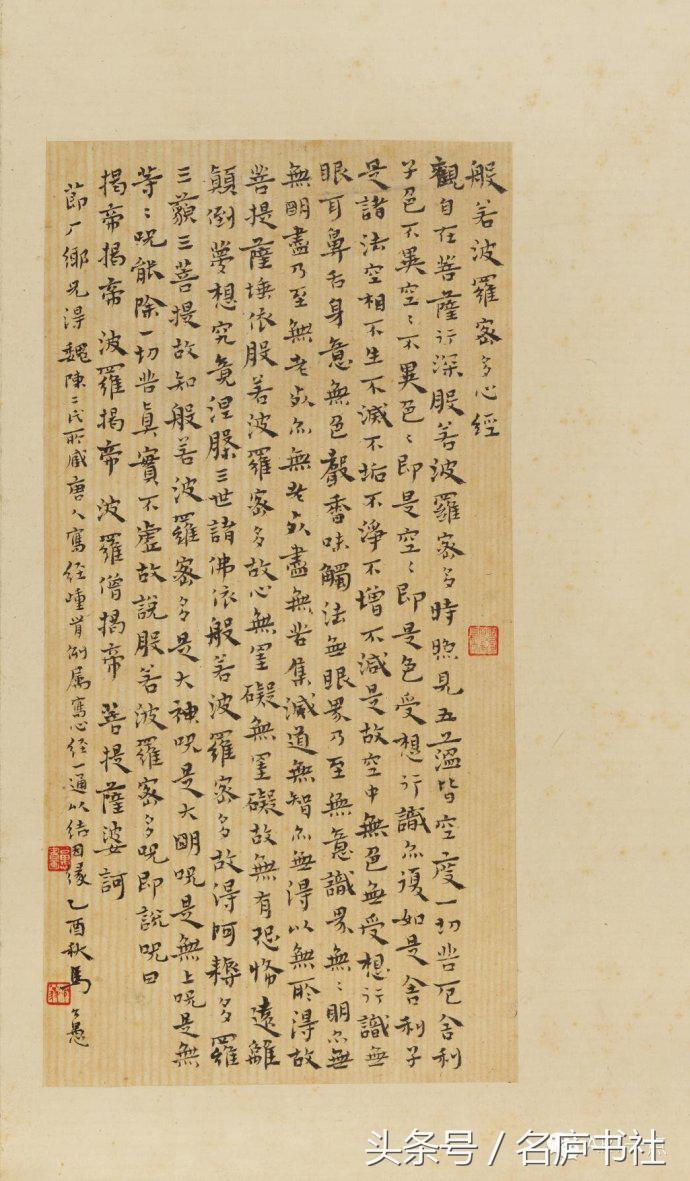 般若波羅密多心經
觀自在菩薩行深般若波羅密多時照見五蘊皆空度一切苦厄舍利
子色不異空〻不異色〻即是空〻即是色受想行識亦復如是舍利子
是諸法空相不生不滅不垢不淨不增不減是故空中無色無受想行識無
眼耳鼻舌身意無色聲香味觸法無眼界乃至無意識界無〻明亦無
無明盡乃至無老死亦無老死盡無苦集滅道無智亦無得以無所得故
菩提薩埵依般若波羅密多故心無罣礙無罣礙故無有恐怖遠離
顛倒夢想究竟涅槃三世諸佛依般若波羅密多故得阿耨多羅
三藐三菩提故知般若波羅密多是大神咒是大明咒是無上咒是無
等〻咒能除一切苦真實不虛故說般若波羅密多咒即說咒曰
揭帝揭帝 波羅揭帝 波羅僧揭帝 菩提薩婆訶
節厂鄉兄得魏陳二氏所藏唐人寫經属寫心經一通以結因緣 乙酉秋 馬公愚
头条号 / 名庐书社